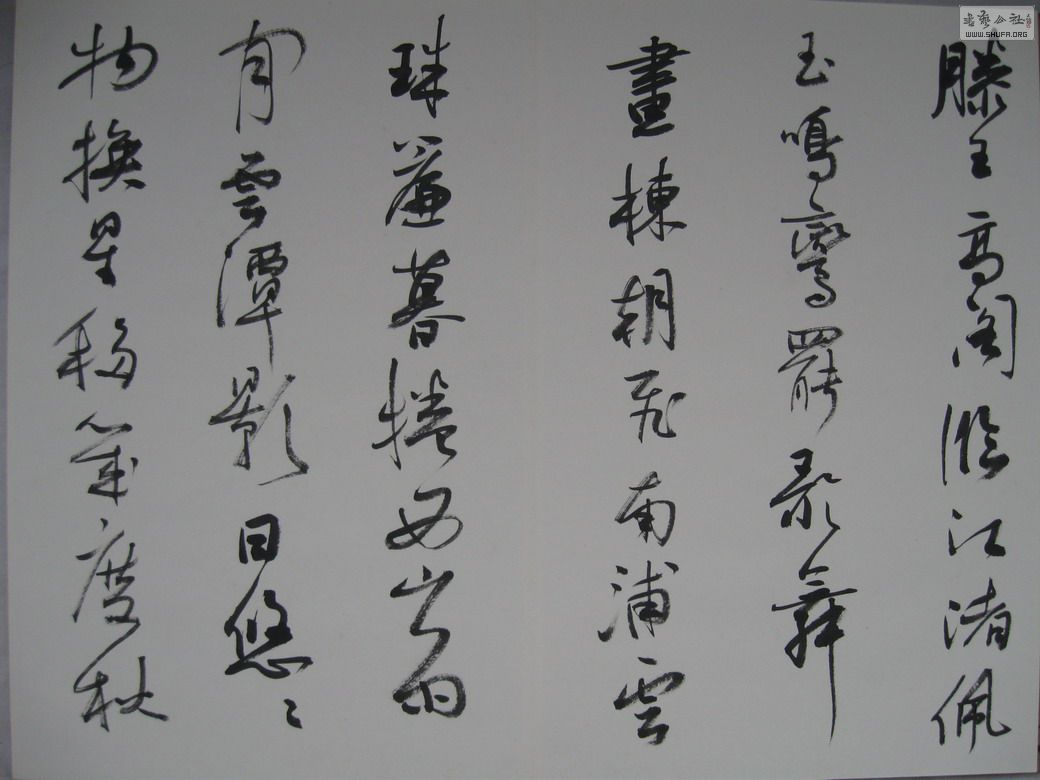 滕王高閣臨江渚佩
玉鳴鸞罷歌舞
畫棟朝飛南浦雲
珠簾暮捲西山雨
閒雲潭影日悠々
物換星移幾度秋
書藝公社
WWW.SHUFA.ORG